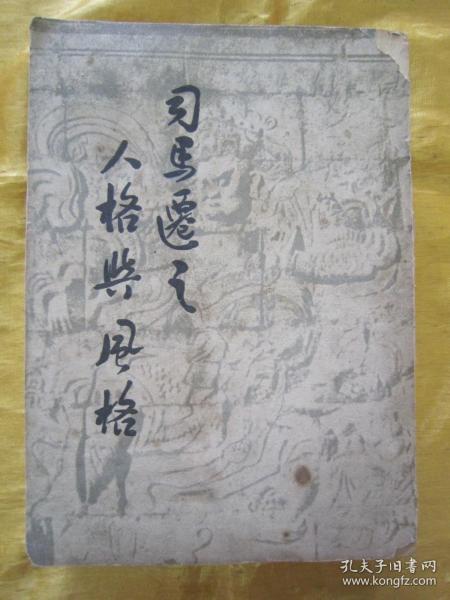 司馬遷之
人格與風格
孔夫子旧书网
www.kongfz.com